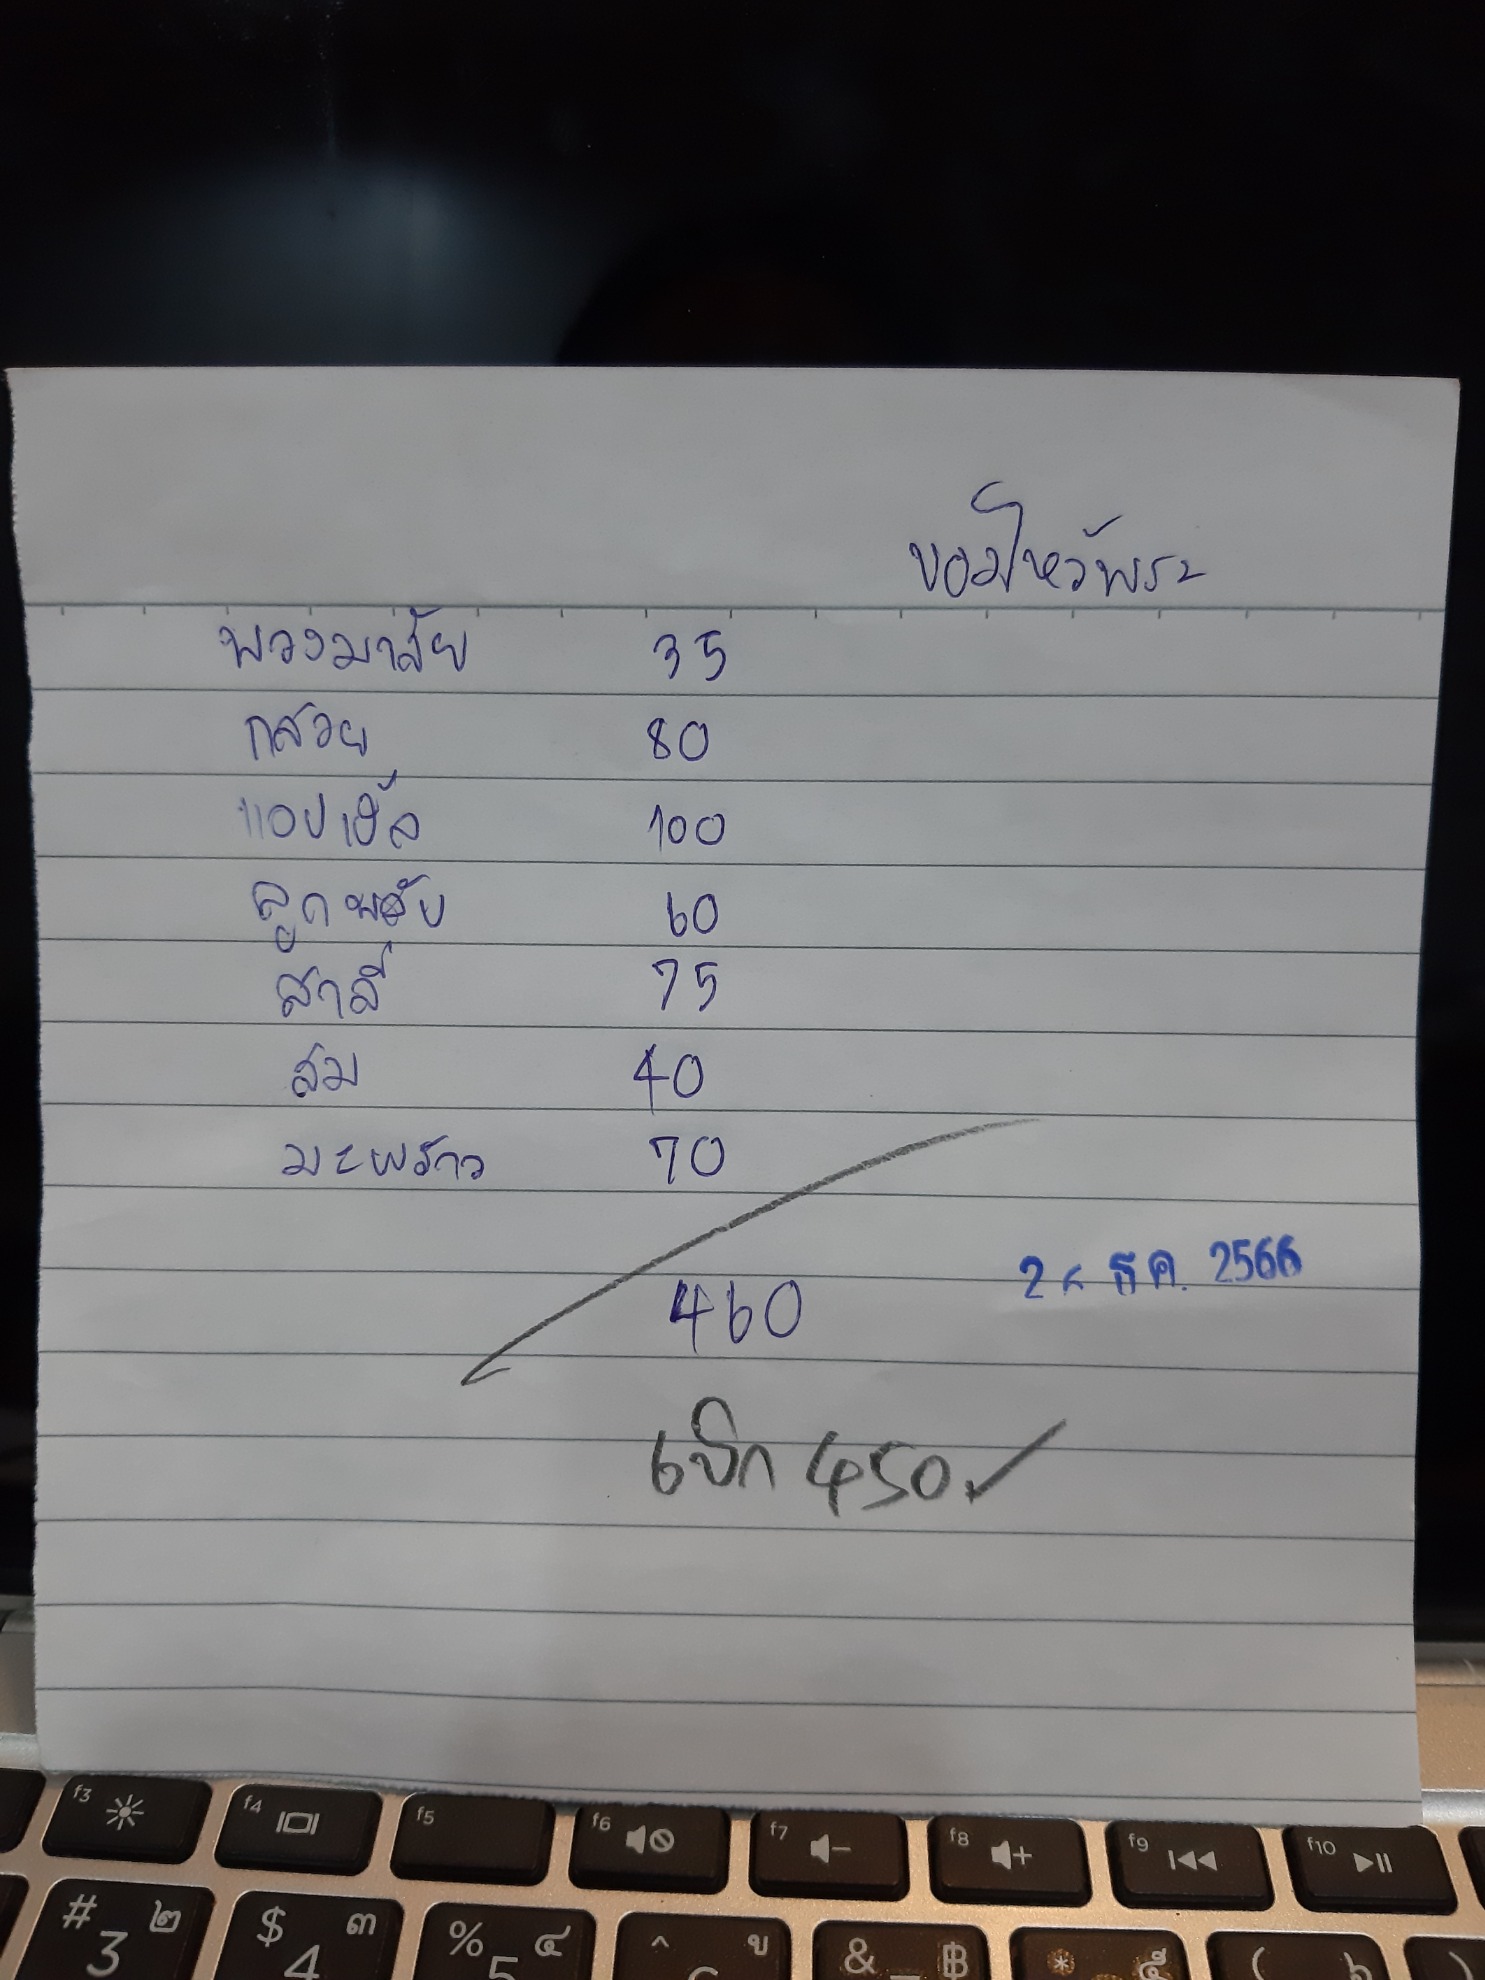 ของไหว้พระ
พวงมาลัย 35
กลวย 80
แอปเปิ้ล 100
ลูกพลับ 60
สาลี่ 75
สม 40
มะพร้าว 70
460
2 ธ.ค. 2566
เบิก 450 ✓
f3 f4 f5 f6 f7 f8 f9 f10
# ๒ 3 $ ๓ 4 % ๔ 5 ^ ข & ฿ * ๕ ( ๖ )